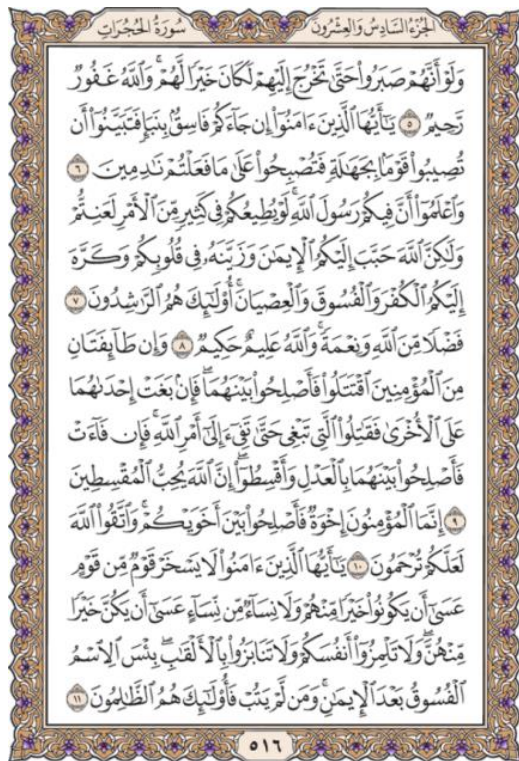 الجُزءُ السَّادِسُ وَالعِشْرُونَ
سُورَةُ الحُجُرَاتِ
وَلَوْ أَنَّهُمْ صَبَرُوا۟ حَتَّىٰ تَخْرُجَ إِلَيْهِمْ لَكَانَ خَيْرًا لَّهُمْ ۚ وَٱللَّهُ غَفُورٌ
رَّحِيمٌ ٥ يَـٰٓأَيُّهَا ٱلَّذِينَ ءَامَنُوٓا۟ إِن جَآءَكُمْ فَاسِقٌۢ بِنَبَإٍ فَتَبَيَّنُوٓا۟ أَن
تُصِيبُوا۟ قَوْمًۢا بِجَهَـٰلَةٍ فَتُصْبِحُوا۟ عَلَىٰ مَا فَعَلْتُمْ نَـٰدِمِينَ ٦
وَٱعْلَمُوٓا۟ أَنَّ فِيكُمْ رَسُولَ ٱللَّهِ ۚ لَوْ يُطِيعُكُمْ فِى كَثِيرٍ مِّنَ ٱلْأَمْرِ لَعَنِتُّمْ
وَلَـٰكِنَّ ٱللَّهَ حَبَّبَ إِلَيْكُمُ ٱلْإِيمَـٰنَ وَزَيَّنَهُۥ فِى قُلُوبِكُمْ وَكَرَّهَ
إِلَيْكُمُ ٱلْكُفْرَ وَٱلْفُسُوقَ وَٱلْعِصْيَانَ ۚ أُو۟لَـٰٓئِكَ هُمُ ٱلرَّٰشِدُونَ ٧
فَضْلًا مِّنَ ٱللَّهِ وَنِعْمَةً ۚ وَٱللَّهُ عَلِيمٌ حَكِيمٌ ٨ وَإِن طَآئِفَتَانِ
مِنَ ٱلْمُؤْمِنِينَ ٱقْتَتَلُوا۟ فَأَصْلِحُوا۟ بَيْنَهُمَا ۖ فَإِنۢ بَغَتْ إِحْدَىٰهُمَا
عَلَى ٱلْأُخْرَىٰ فَقَـٰتِلُوا۟ ٱلَّتِى تَبْغِى حَتَّىٰ تَفِىٓءَ إِلَىٰٓ أَمْرِ ٱللَّهِ ۚ فَإِن فَآءَتْ
فَأَصْلِحُوا۟ بَيْنَهُمَا بِٱلْعَدْلِ وَأَقْسِطُوٓا۟ ۖ إِنَّ ٱللَّهَ يُحِبُّ ٱلْمُقْسِطِينَ
٩ إِنَّمَا ٱلْمُؤْمِنُونَ إِخْوَةٌ فَأَصْلِحُوا۟ بَيْنَ أَخَوَيْكُمْ ۚ وَٱتَّقُوا۟ ٱللَّهَ
لَعَلَّكُمْ تُرْحَمُونَ ١٠ يَـٰٓأَيُّهَا ٱلَّذِينَ ءَامَنُوا۟ لَا يَسْخَرْ قَوْمٌ مِّن قَوْمٍ
عَسَىٰٓ أَن يَكُونُوا۟ خَيْرًا مِّنْهُمْ وَلَا نِسَآءٌ مِّن نِّسَآءٍ عَسَىٰٓ أَن يَكُنَّ خَيْرًا
مِّنْهُنَّ ۖ وَلَا تَلْمِزُوٓا۟ أَنفُسَكُمْ وَلَا تَنَابَزُوا۟ بِٱلْأَلْقَـٰبِ ۖ بِئْسَ ٱلِٱسْمُ
ٱلْفُسُوقُ بَعْدَ ٱلْإِيمَـٰنِ ۚ وَمَن لَّمْ يَتُبْ فَأُو۟لَـٰٓئِكَ هُمُ ٱلظَّـٰلِمُونَ ١١
٥١٦